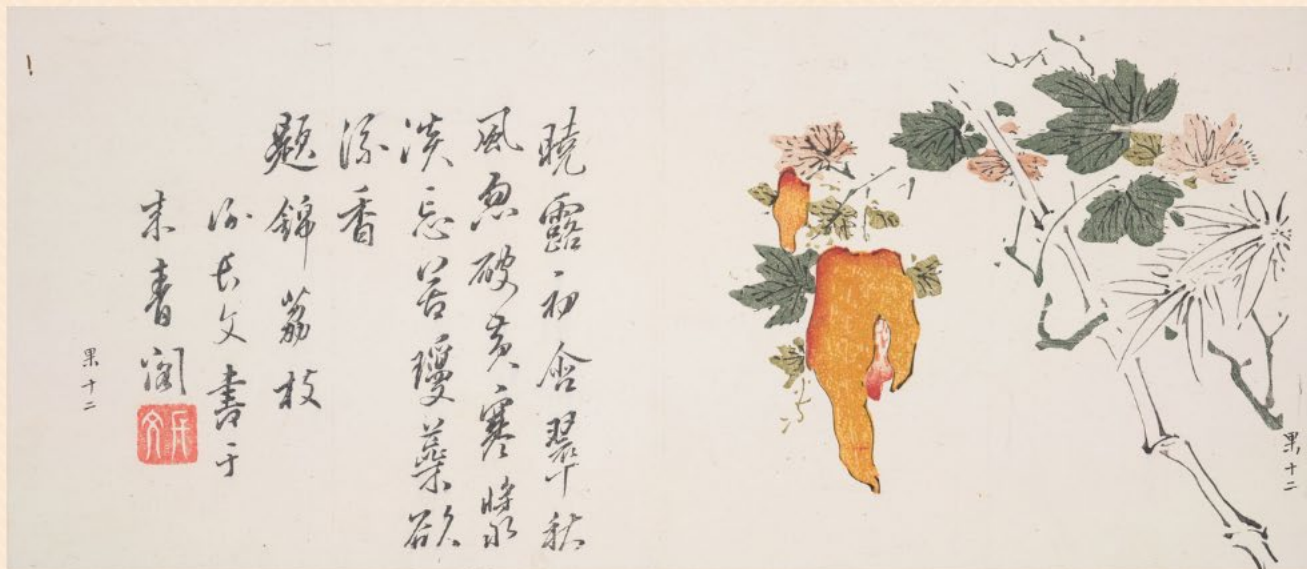 果十二
曉露初含翠秋
風忽破黃寒漿
淡忘苦瓊蘂欲
流香
題錦荔枝
長文書于
来青閣
長文
果十二